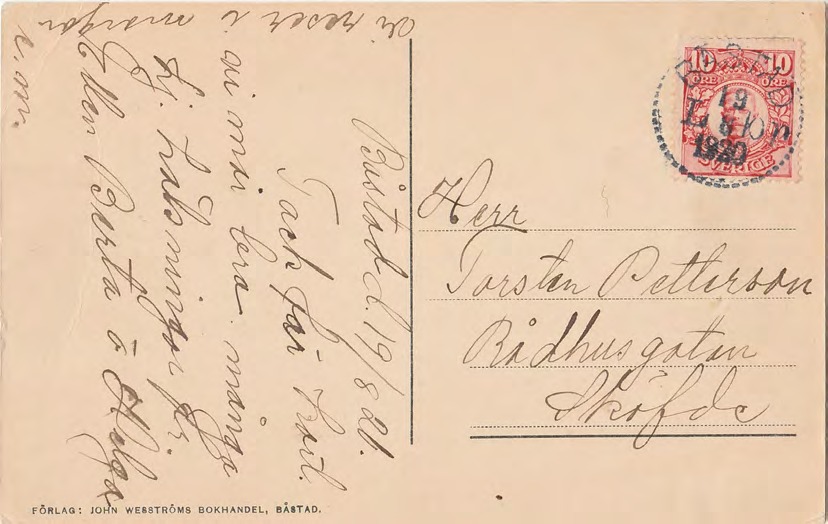 Båstad d. 19/8 20.
Tack för kort.
vi må bra. många
hj. hälsningar fr.
Ellen Berta o Helga
vi reser i morgon
e.m.
Herr
Torsten Petterson
Rådhusgatan
Sköfde
10 10
ÖRE ÖRE
SVERIGE
BÅSTAD
19
8
1920
FÖRLAG: JOHN WESSTRÖMS BOKHANDEL, BÅSTAD.